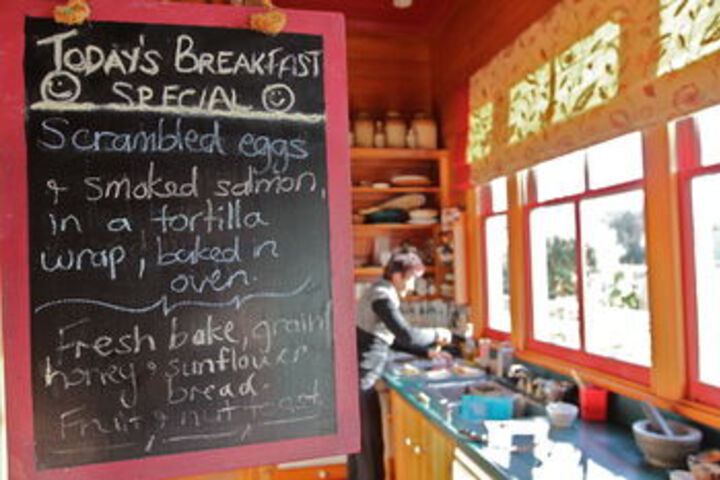 TODAY'S BREAKFAST
SPECIAL
Scrambled eggs
& smoked salmon,
in a tortilla
wrap, baked in
oven.
Fresh bake, grain
honey & sunflower
bread.
Fruit & nut toast